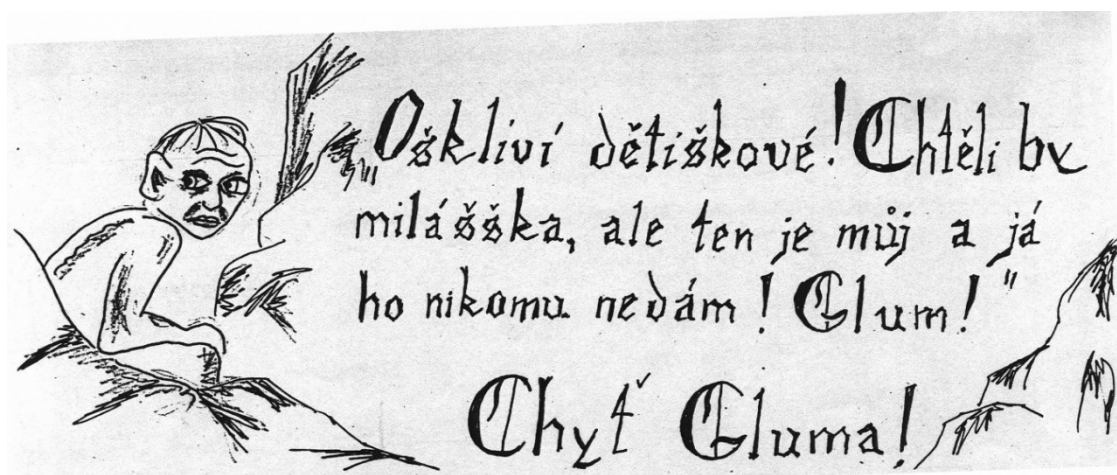 „Oškliví dětiškové! Chtěli by
milášška, ale ten je můj a já
ho nikomu nedám! Glum!"
Chyť Gluma!